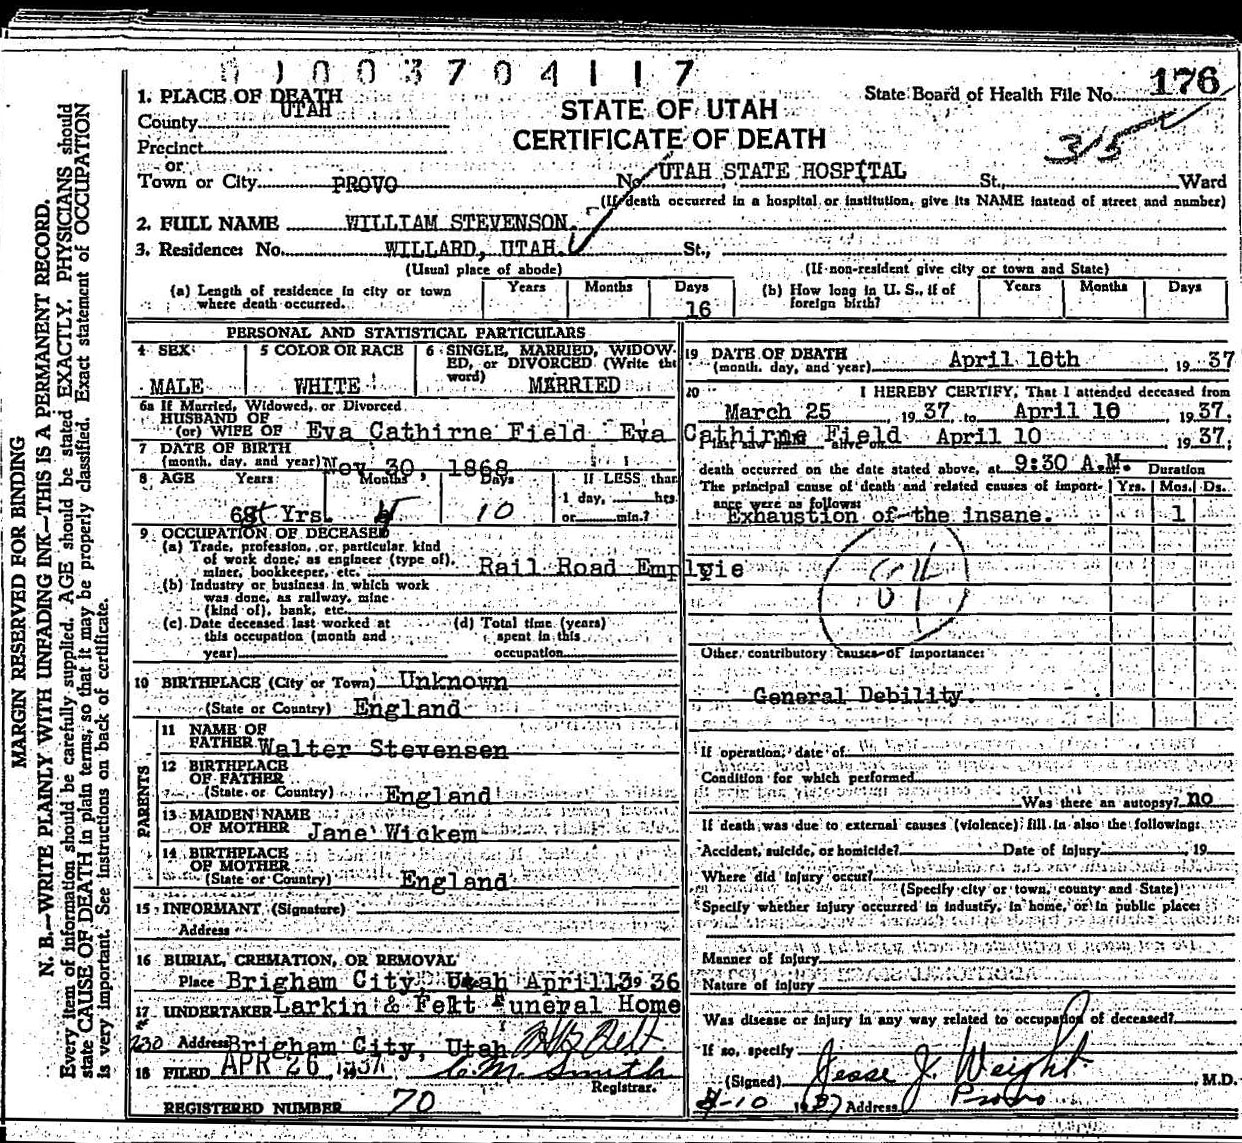 0 1 0 0 3 7 0 4 1 1 7
176
1. PLACE OF DEATH
STATE OF UTAH
State Board of Health File No.
County UTAH
CERTIFICATE OF DEATH
315
Precinct
or
Town or City PROVO No. UTAH STATE HOSPITAL St., Ward
(If death occurred in a hospital or institution, give its NAME instead of street and number)
2. FULL NAME WILLIAM STEVENSON.
3. Residence: No. WILLARD, UTAH. St.,
(Usual place of abode) (If non-resident give city or town and State)
(a) Length of residence in city or town where death occurred. Years Months Days 16
(b) How long in U. S., if of foreign birth? Years Months Days
PERSONAL AND STATISTICAL PARTICULARS
4 SEX 5 COLOR OR RACE 6 SINGLE, MARRIED, WIDOW-
ED, or DIVORCED (Write the
word)
MALE WHITE MARRIED
6a If Married, Widowed, or Divorced
HUSBAND OF
(or) WIFE OF Eva Cathirne Field Eva Cathirne Field
7 DATE OF BIRTH
(month, day, and year) Nov. 30, 1868
8 AGE Years Months Days If LESS than
1 day, hrs.
68 Yrs. 10 or min.?
9 OCCUPATION OF DECEASED
(a) Trade, profession, or particular kind
of work done, as engineer (type of),
miner, bookkeeper, etc. Rail Road Emplyie
(b) Industry or business in which work
was done, as railway, mine
(kind of), bank, etc.
(c) Date deceased last worked at
this occupation (month and
year)
(d) Total time (years)
spent in this
occupation
10 BIRTHPLACE (City or Town) Unknown
(State or Country) England
PARENTS
11 NAME OF
FATHER Walter Stevensen
12 BIRTHPLACE
OF FATHER
(State or Country) England
13 MAIDEN NAME
OF MOTHER Jane Wickem
14 BIRTHPLACE
OF MOTHER
(State or Country) England
15 INFORMANT (Signature)
Address
16 BURIAL, CREMATION, OR REMOVAL
Place Brigham City, Utah April 13 36
17 UNDERTAKER Larkin & Felt Funeral Home
#230 Address Brigham City, Utah
18 FILED APR 26 1937 C. M. Smith
Registrar.
REGISTERED NUMBER 70
19 DATE OF DEATH
(month, day, and year) April 10th 19 37
20 I HEREBY CERTIFY, That I attended deceased from
March 25 1937, to April 10 1937.
April 10 1937.
death occurred on the date stated above, at 9:30 A.M. Duration
The principal cause of death and related causes of import-
ance were as follows: Yrs. Mos. Ds.
Exhaustion of the insane. 1
Other contributory causes of importance:
General Debility.
If operation, date of
Condition for which performed
Was there an autopsy? no
If death was due to external causes (violence) fill in also the following:
Accident, suicide, or homicide? Date of injury 19
Where did injury occur?
(Specify city or town, county and State)
Specify whether injury occurred in industry, in home, or in public place:
Manner of injury
Nature of injury
Was disease or injury in any way related to occupation of deceased?
If so, specify
(Signed) Jesse J. Weight M.D.
4-10 1937 Address Provo
MARGIN RESERVED FOR BINDING
N. B.—WRITE PLAINLY WITH UNFADING INK—THIS IS A PERMANENT RECORD.
Every item of information should be carefully supplied. AGE should be stated EXACTLY. PHYSICIANS should
state CAUSE OF DEATH in plain terms, so that it may be properly classified. Exact statement of OCCUPATION
is very important. See instructions on back of certificate.